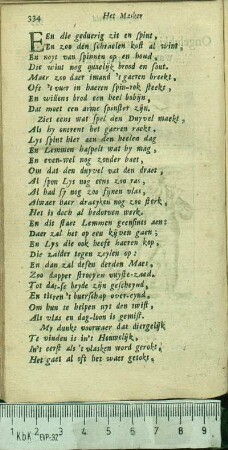 334 Het Masker
EEn die geduerig zit en spint,
En zoo den schraelen kost al wint,
En noyt van spinnen op en houd,
Die wint nog qualijk brood en sout.
Maer zoo daer imand 't gaeren breekt,
Oft 't vuer in haeren spin-rok steekt,
En wilkens brod een heel bobijn,
Dat moet een arme spinster zijn.
Ziet eens wat spel den Duyvel maekt,
Als hy ontrent het gaeren raekt,
Lys spint hier aen den heelen dag
En Lemmen haspelt wat hy mag,
En even-wel nog zonder baet,
Om dat den duyvel vat den draet,
Al spon Lys nog eens zoo ras,
Al had sy nog zoo fijnen vlas,
Alwaer haer draeyken nog zoo sterk,
Het is doch al bedorven werk.
En dit staet Lemmen geensints aen:
Daer zal het op een kijven gaen;
En Lys die ook heeft haeren kop,
Die zalder tegen zeylen op:
En dan zal desen derden Maet,
Zoo dapper stroeyen vuyste-zaed,
Tot dat-se beyde zijn gescheynd,
En tieren 't buerschap over-eynd,
Om hun te helpen uyt den twist,
Als vlas en dag-loon is gemist.
My dunkt voorwaer dat diergelijk
Te vinden is in't Houwelijk,
In't eerst als 't vlasken word gerokt,
Het gaet al oft het waer gelokt,
1 2 3 4 5 6 7 8 9
KbK